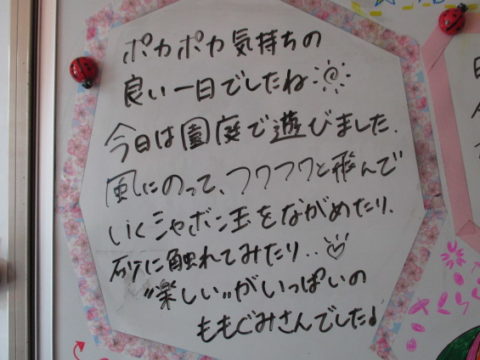 ポカポカ気持ちの
良い一日でしたね
今日は園庭で遊びました.
風にのって、フワフワと飛んで
いくシャボン玉をながめたり、
砂に触れてみたり‥♡
"楽しい"がいっぱいの
ももぐみさんでした♪